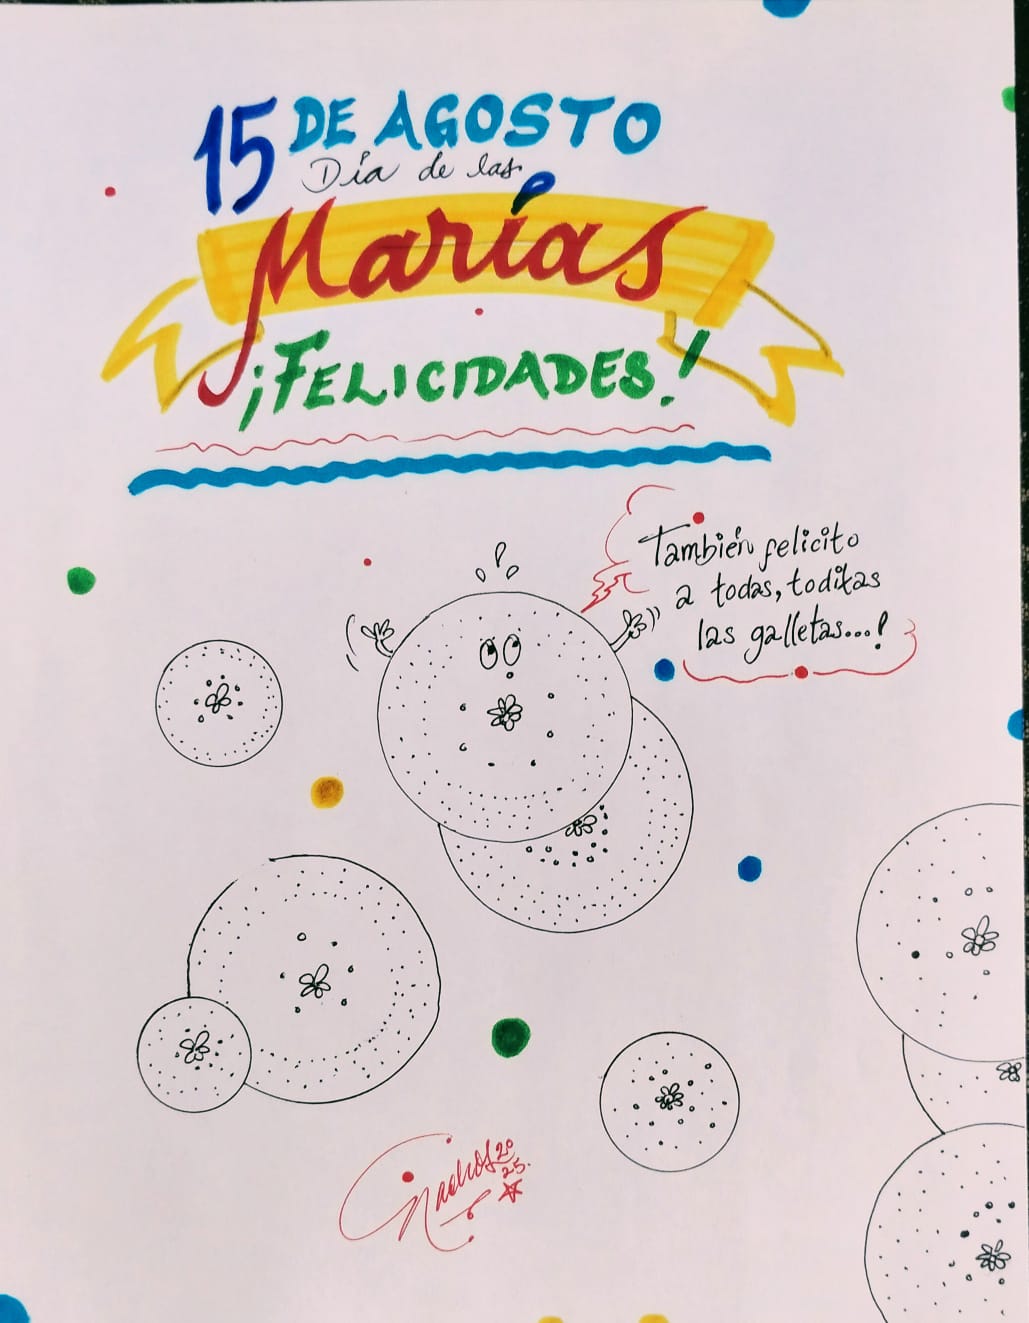 15 DE AGOSTO
Día de las
Marías
¡FELICIDADES!
También felicito
a todas, toditas
las galletas...!
2025.